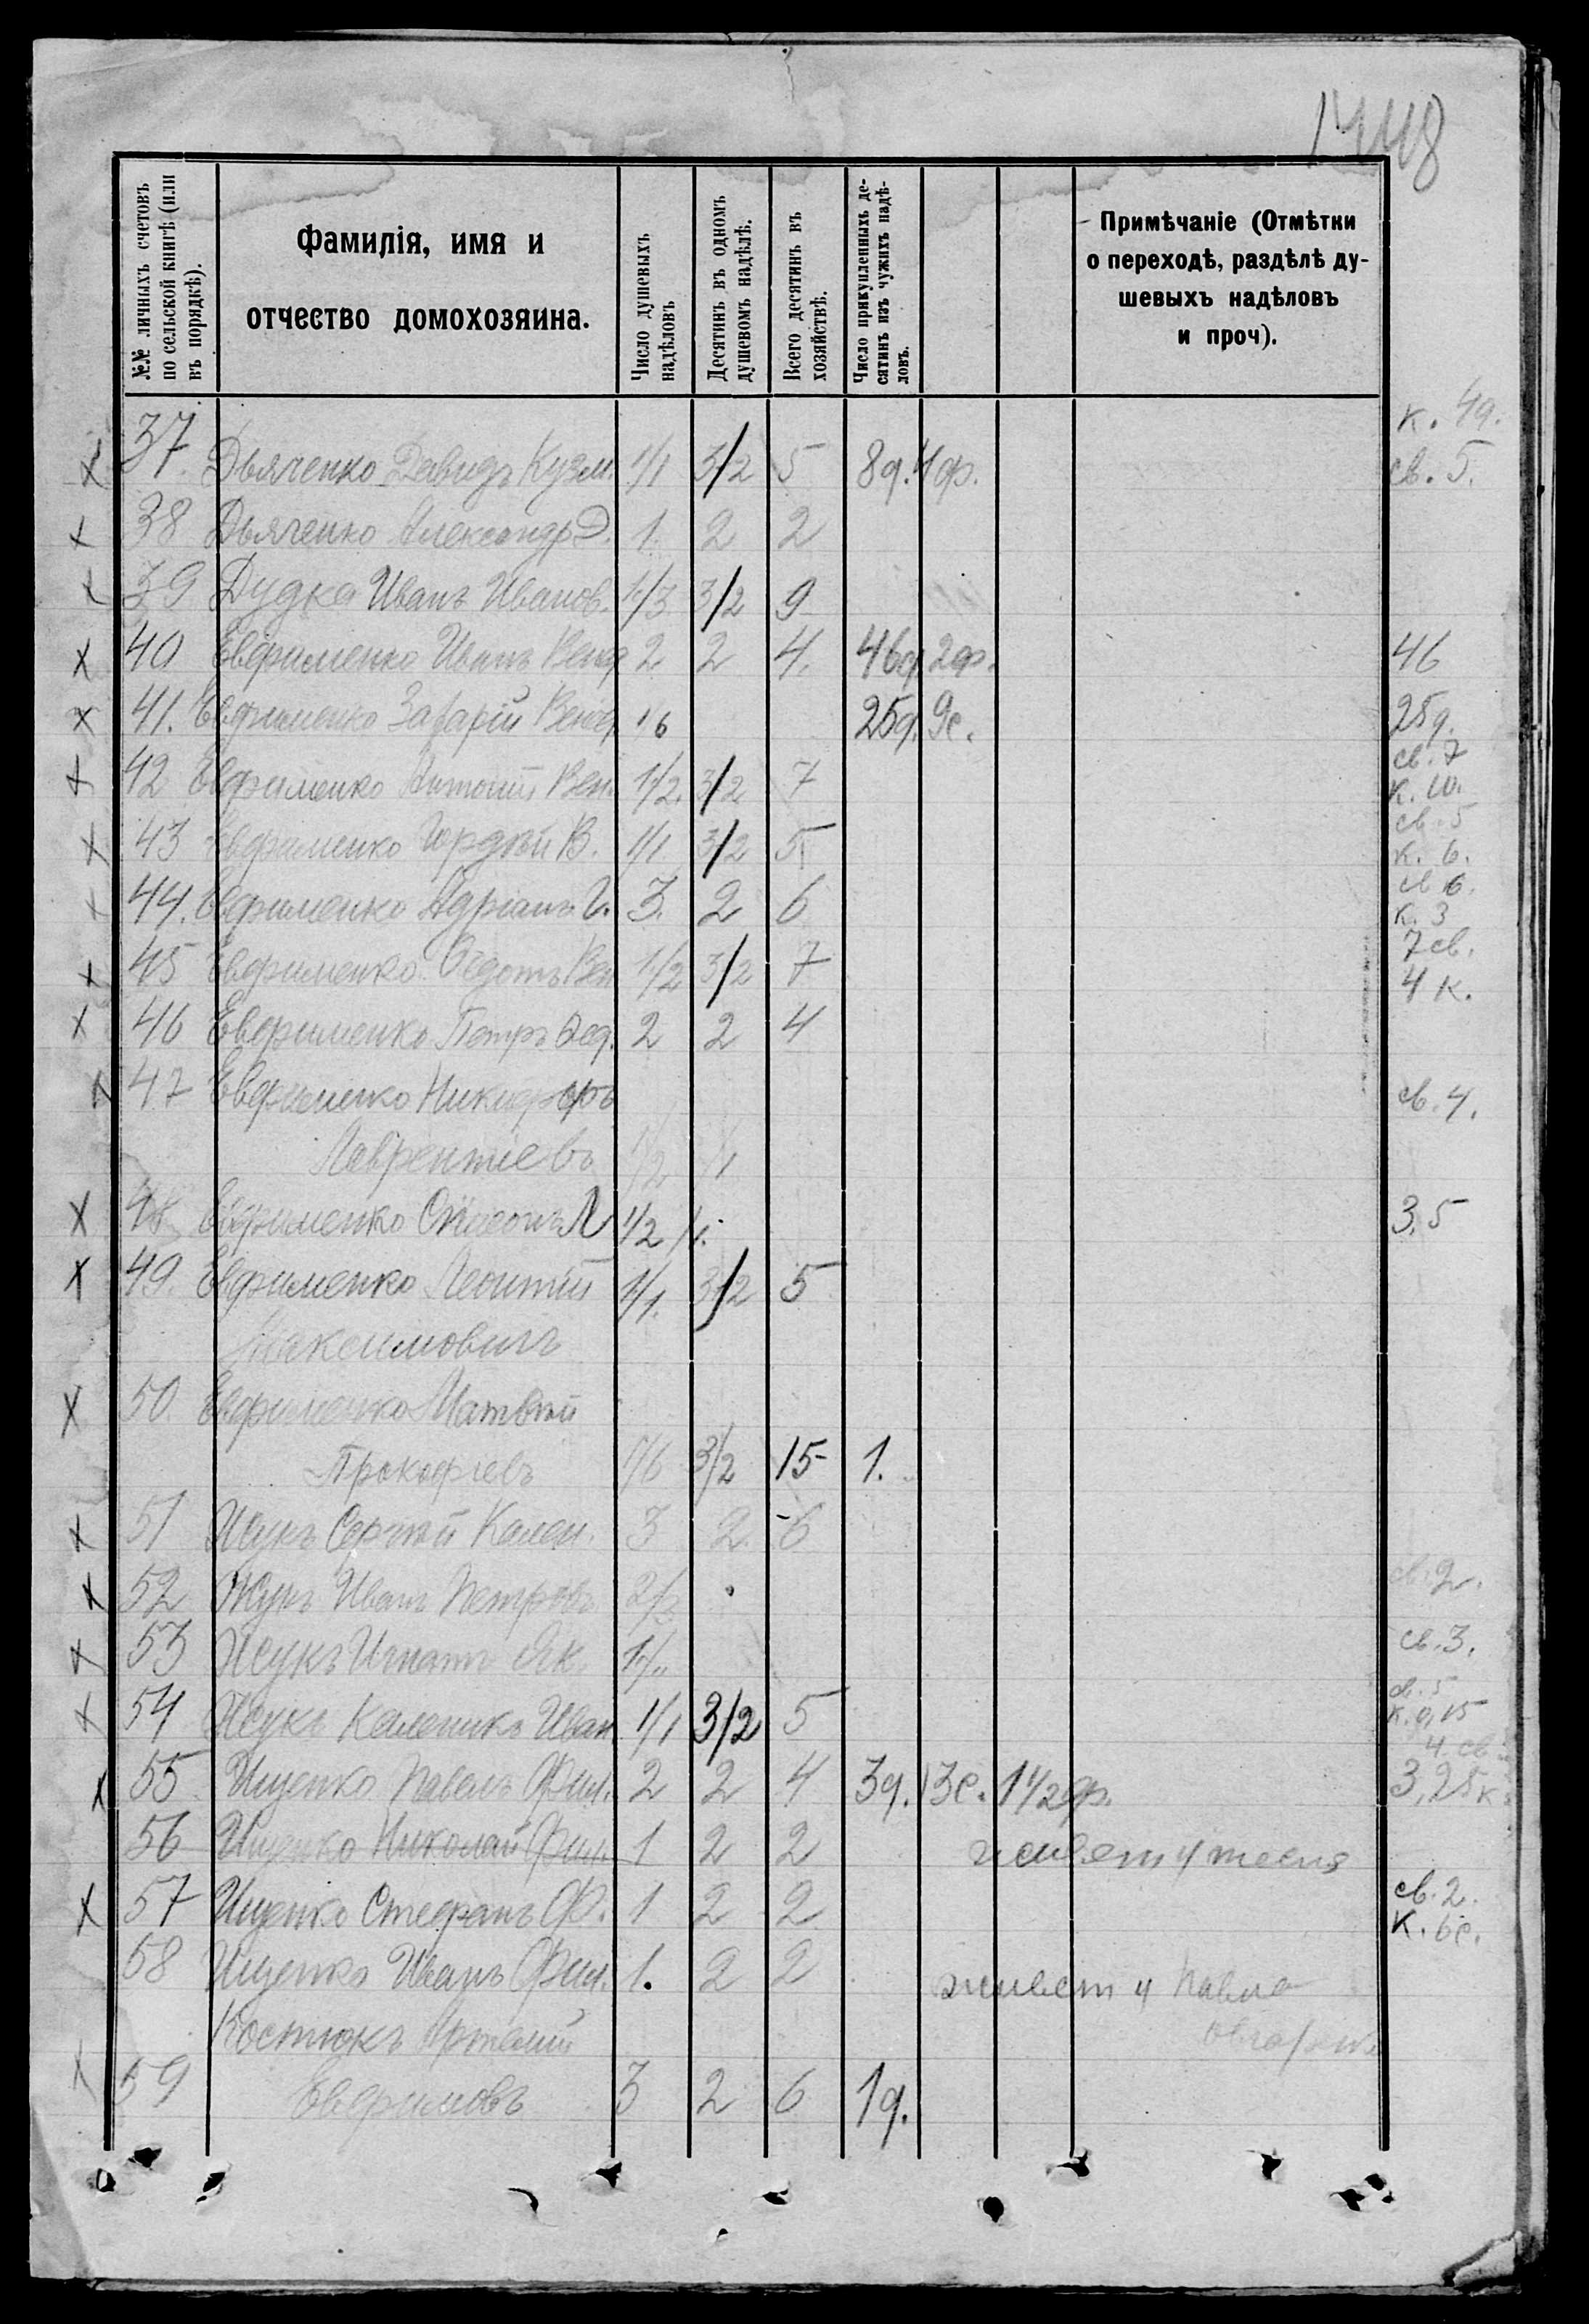 1448
№№ личныхъ счетовъ по сельской книгѣ (или въ порядкѣ).
Фамилія, имя и отчество домохозяина.
Число душевыхъ надѣловъ
Десятинъ въ одномъ душевомъ надѣлѣ.
Всего десятинъ въ хозяйствѣ.
Число прикупленныхъ десятинъ изъ чужихъ надѣловъ.
Примѣчаніе (Отмѣтки о переходѣ, раздѣлѣ душевыхъ надѣловъ и проч).
к. 4д.
х 37. Дьяченко Давидъ Кузм. 1/1 3/2 5 8д. 4ф. св. 5.
х 38 Дьяченко Александръ Д. 1. 2 2
х 39 Дудка Иванъ Иванов. 1/3 3/2 9
х 40 Евфименко Иванъ Венед 2 2 4. 46д 2ф. 46
х 41. Евфименко Захарій Венед 1/6 25д. 9с. 25д.
св. 7
х 42 Евфименко Антоній Вен. 1/2. 3/2 7 к. 10.
св. 5
х 43 Евфименко Гордѣй В. 1/1 3/2 5 к. 6.
св 6.
х 44. Евфименко Адріанъ Г. 3. 2 6 к. 3
7 св.
х 45 Евфименко Ѳедотъ Вен 1/2 3/2 7 4 к.
х 46 Евфименко Петръ Ѳед. 2 2 4
47 Евфименко Никифоръ св. 4.
Лаврентіевъ 1/2 /1
х 48 Евфименко Л 1/2 /1. 3,5
х 49. Евфименко Леонтій 1/1. 3/2 5
Максимовичъ
х 50. Евфименко Матвѣй
Прокофіевъ 1/6 3/2 15 1.
х 51 Жукъ Сергѣй Кален. 3 2 6
х 52 Жукъ Иванъ Петровъ св. 2.
х 53 Жукъ Игнатъ Як. св. 3.
св. 5
х 54 Жукъ Каленикъ Иван 1/1 3/2 5 к. 0,15
4 св
х 55 Ищенко Павелъ Фил. 2 2 4 3д. 13с. 1 1/2 ф. 3,25 к
56 Ищенко Николай Фил. 1 2 2 живет у тестя
св. 2.
х 57 Ищенко Стефанъ Ф. 1 2 2 к. 6с.
58 Ищенко Иванъ Фил. 1. 2 2 живет у Павла
Костюкъ Артемій
х 59 Евфимовъ 3 2 6 1д.